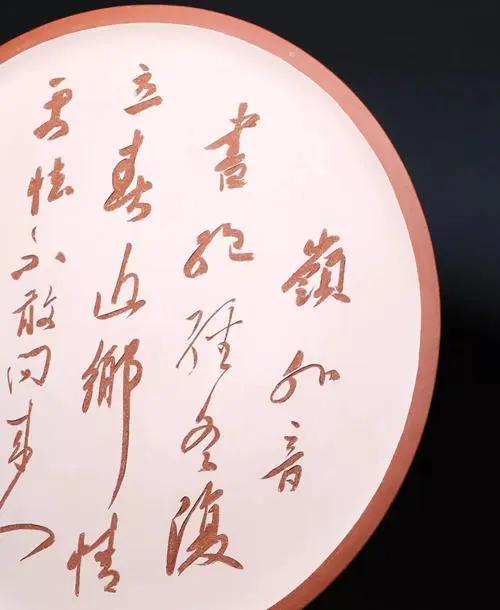 嶺外音
書絕經冬復
立春近鄉情
更怯不敢問來人